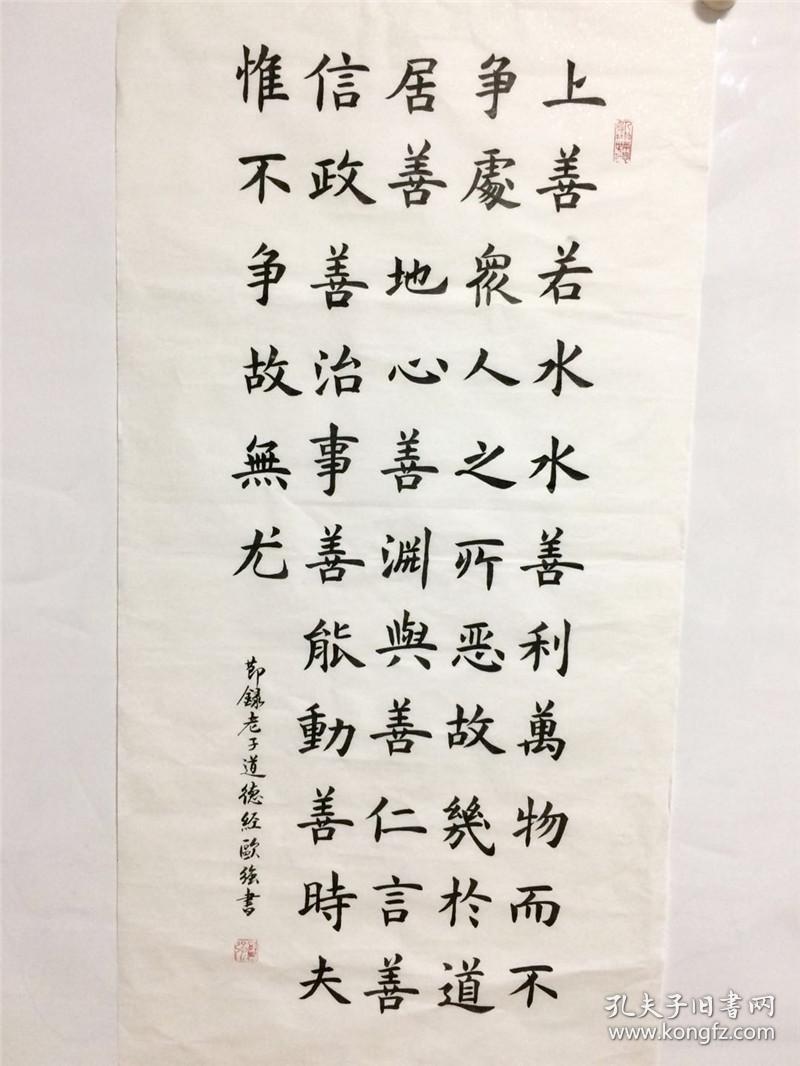 上善若水水善利萬物而不
争處衆人之所恶故幾於道
居善地心善渊與善仁言善
信政善治事善能動善時夫
惟不争故無尤
節録老子道德经歐强書
孔夫子旧書网
www.kongfz.com